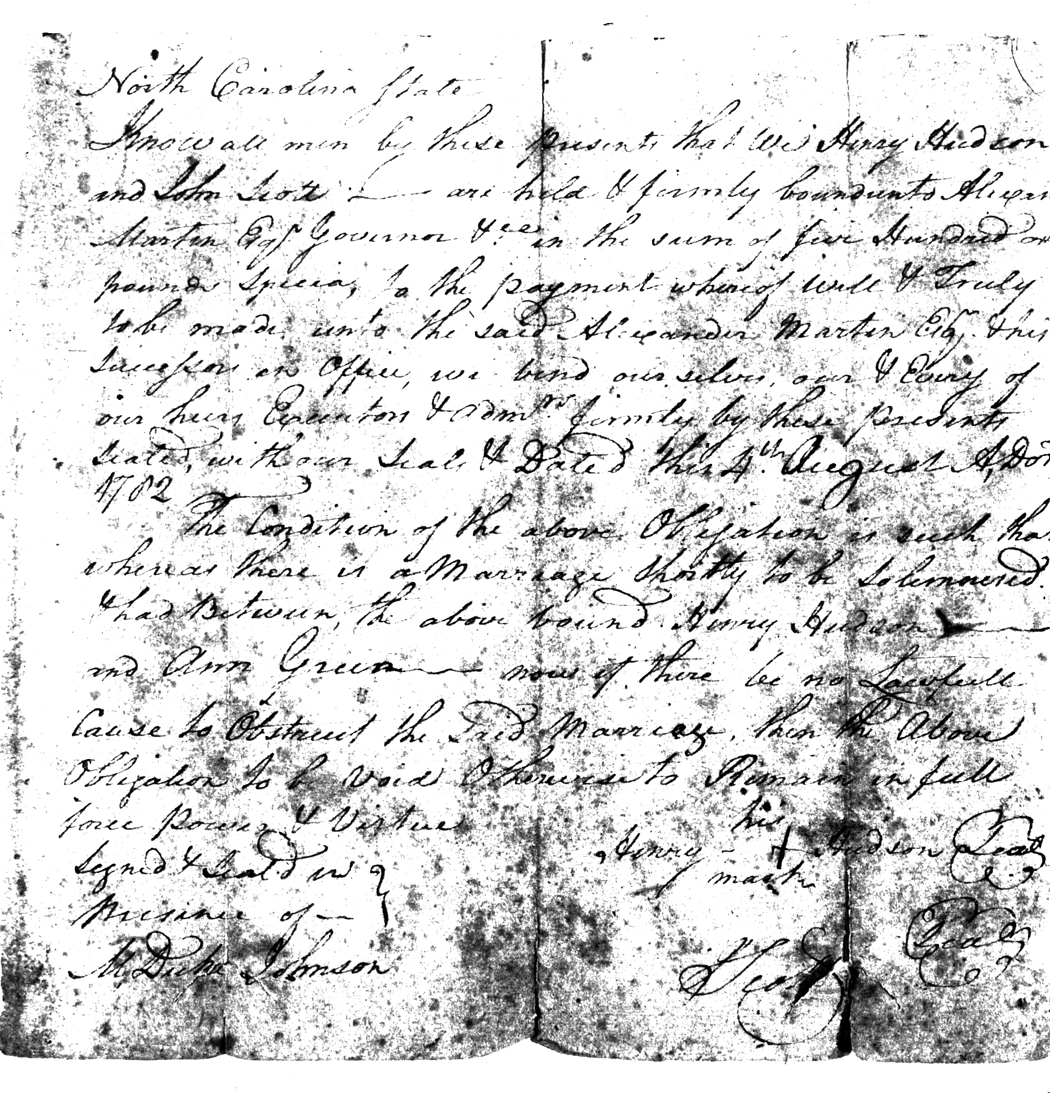 North Carolina State
Know all men by these presents that We Henry Hudson
and John Scott are held & firmly bound unto Alexan
Martin Esqr Governor &ca in the sum of five Hundred
pounds Specia, to the payment whereof will & Truly
to be made unto the said Alexander Martin Esqr & his
Successors in Office, we bind ourselves, our & Every of
our heirs Executors & admrs firmly by these presents
Sealed, with our Seals & Dated this 4th August A, Dom
1782
The Condition of the above Obligation is such that
whereas there is a Marriage Shortly to be Solemnized.
& had Between, the above bound Henry Hudson
and Ann Green now if there be no Lawfull
Cause to Obstruct the Said Marriage, then the Above
Obligation to be Void Otherwise to Remain in full
force Power & Virtue
his
Henry + Hudson Seal
mark
Signed & Seal'd in
Presence of
M Duke Johnson
J Scott Seal